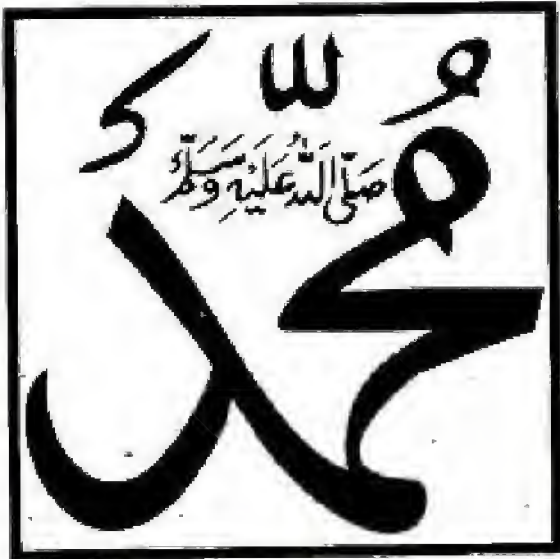 مُحَمَّد
صَلَّى اللَّهُ عَلَيْهِ وَسَلَّمَ